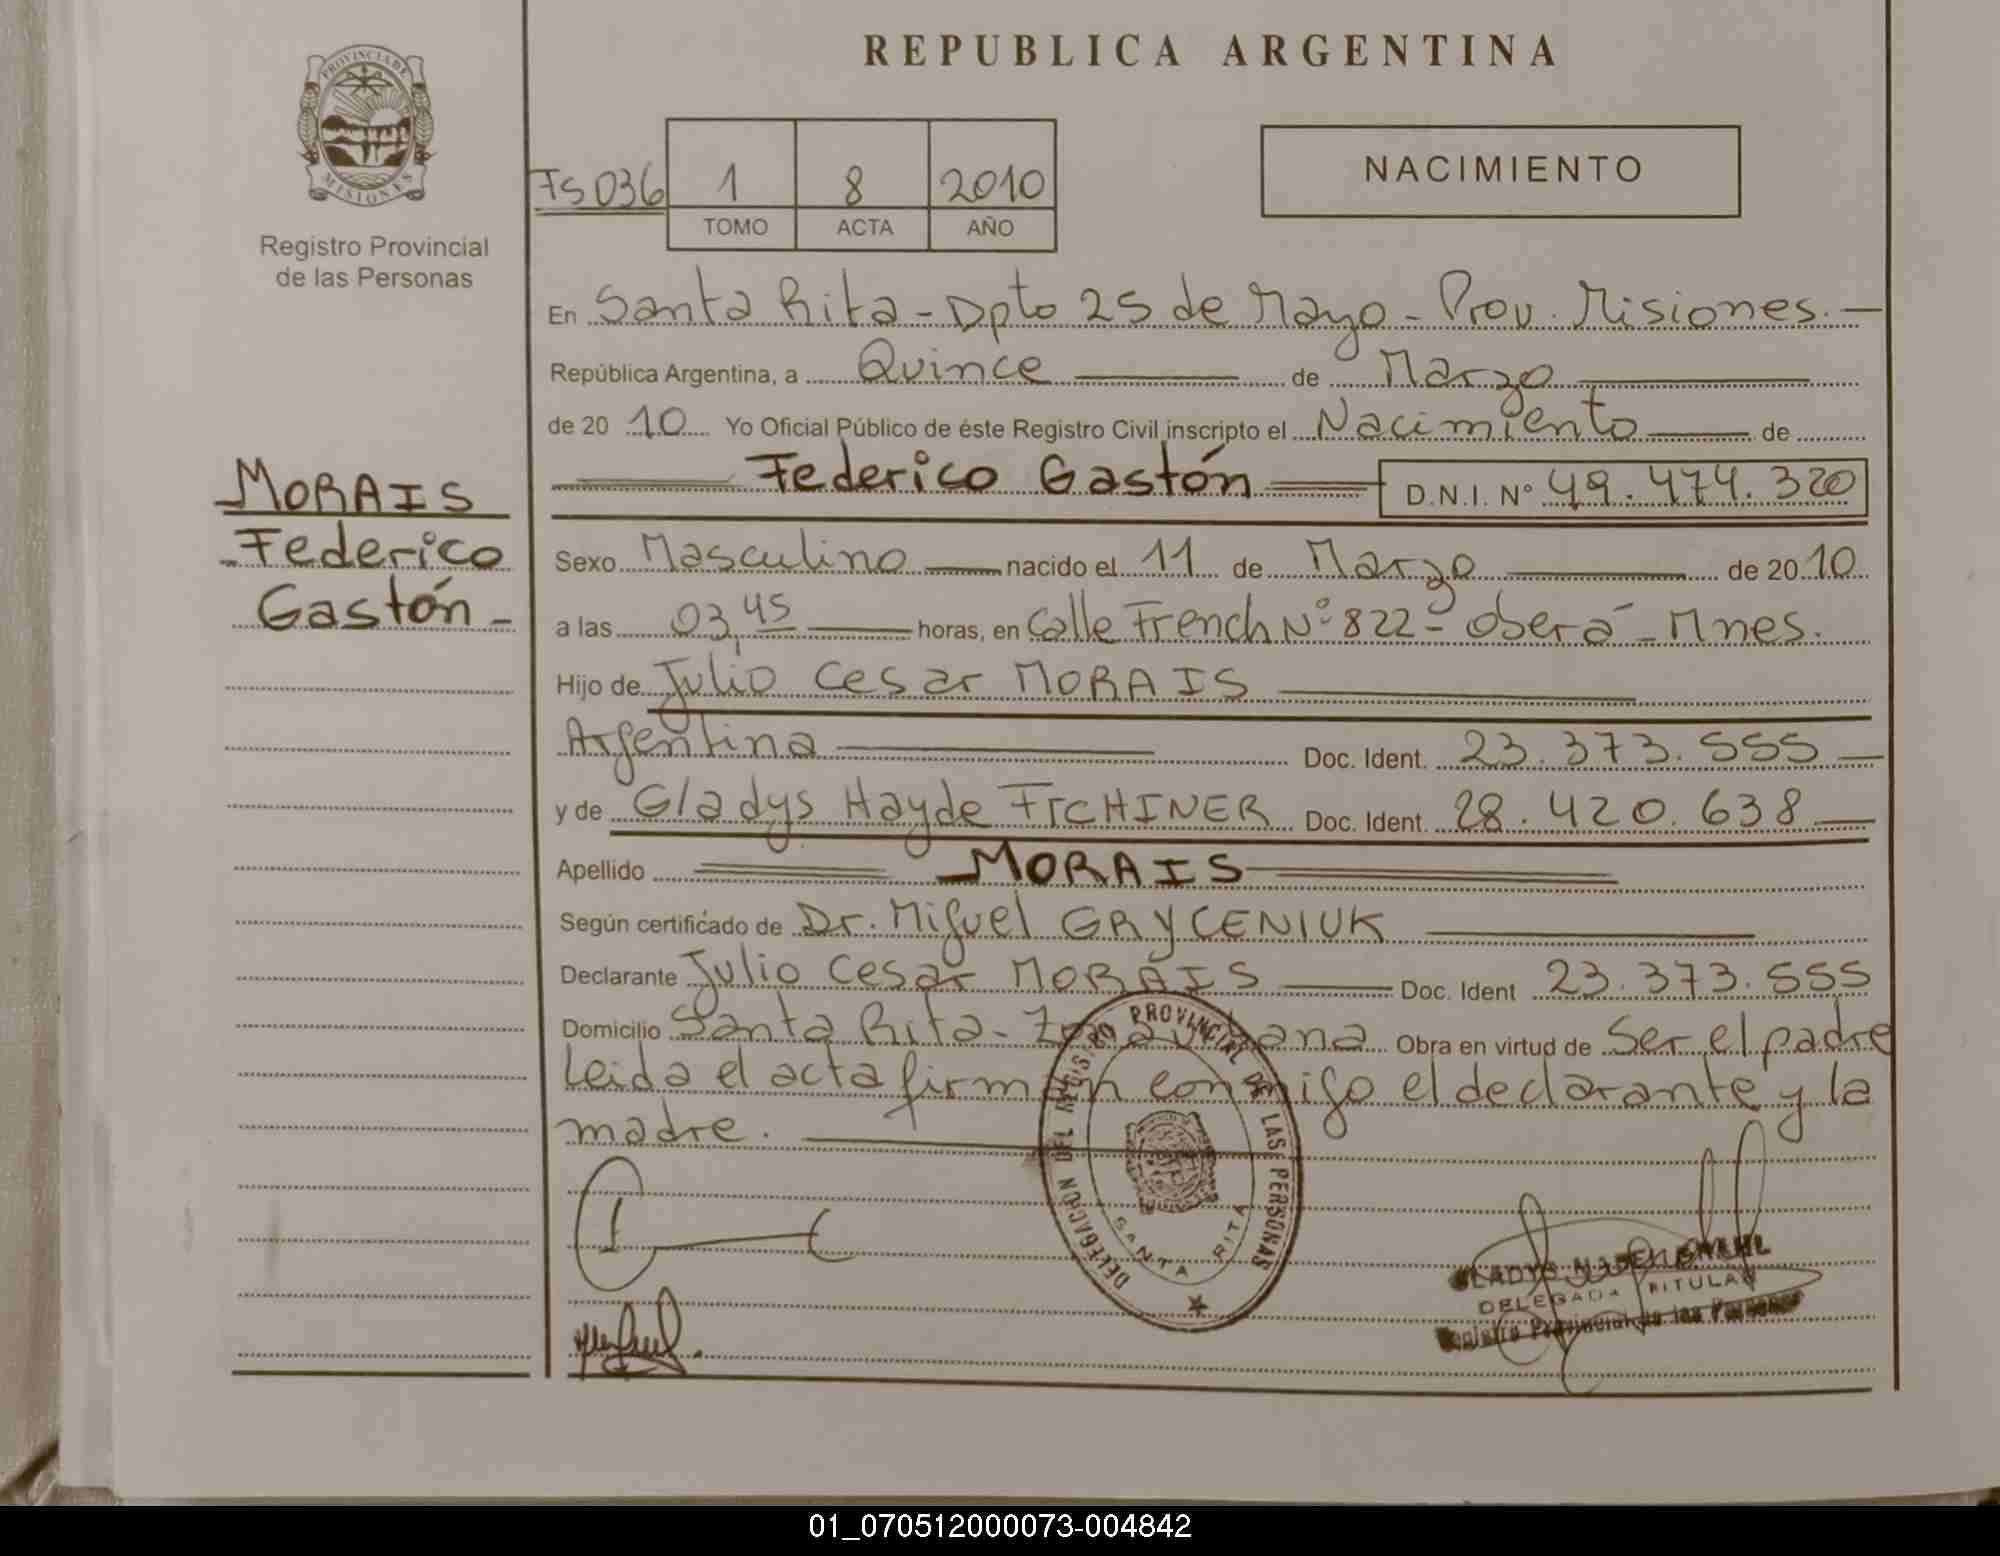 REPUBLICA ARGENTINA
PROVINCIA DE
MISIONES
Registro Provincial
de las Personas
FS 036
1 8 2010
TOMO ACTA AÑO
NACIMIENTO
En Santa Rita - Dpto 25 de Mayo - Prov. Misiones.
República Argentina, a Quince de Marzo
de 2010 Yo Oficial Público de éste Registro Civil inscripto el Nacimiento de
Federico Gastón D.N.I. Nº 49.474.320
MORAIS
Federico
Gastón -
Sexo Masculino nacido el 11 de Marzo de 2010
a las 03,45 horas, en Calle French Nº 822 - Oberá - Mnes.
Hijo de Julio Cesar MORAIS
Argentina Doc. Ident. 23.373.555
y de Gladys Hayde FICHINER Doc. Ident. 28.420.638
Apellido MORAIS
Según certificado de Dr. Miguel GRYCENIUK
Declarante Julio Cesar MORAIS Doc. Ident 23.373.555
Domicilio Santa Rita - Zona Urbana Obra en virtud de Ser el padre
Leida el acta firman conmigo el declarante y la
madre.
DELEGACIÓN DEL REGISTRO PROVINCIAL DE LAS PERSONAS
SANTA RITA
GLADYS
DELEGADA TITULAR
Registro Provincial de las Personas
01_070512000073-004842